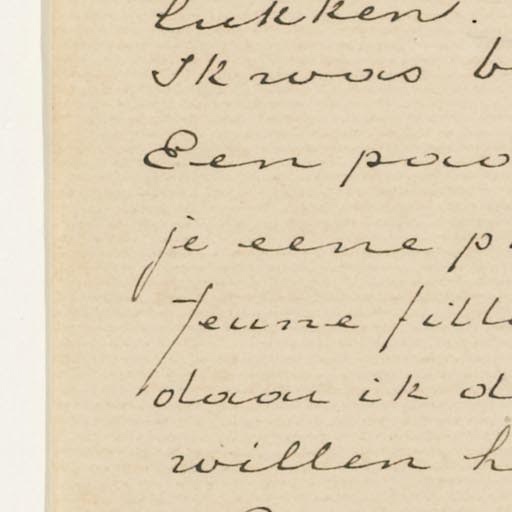 lukken.
Ik was b
Een paa
je eene p
Jeune fill
daar ik d
willen h